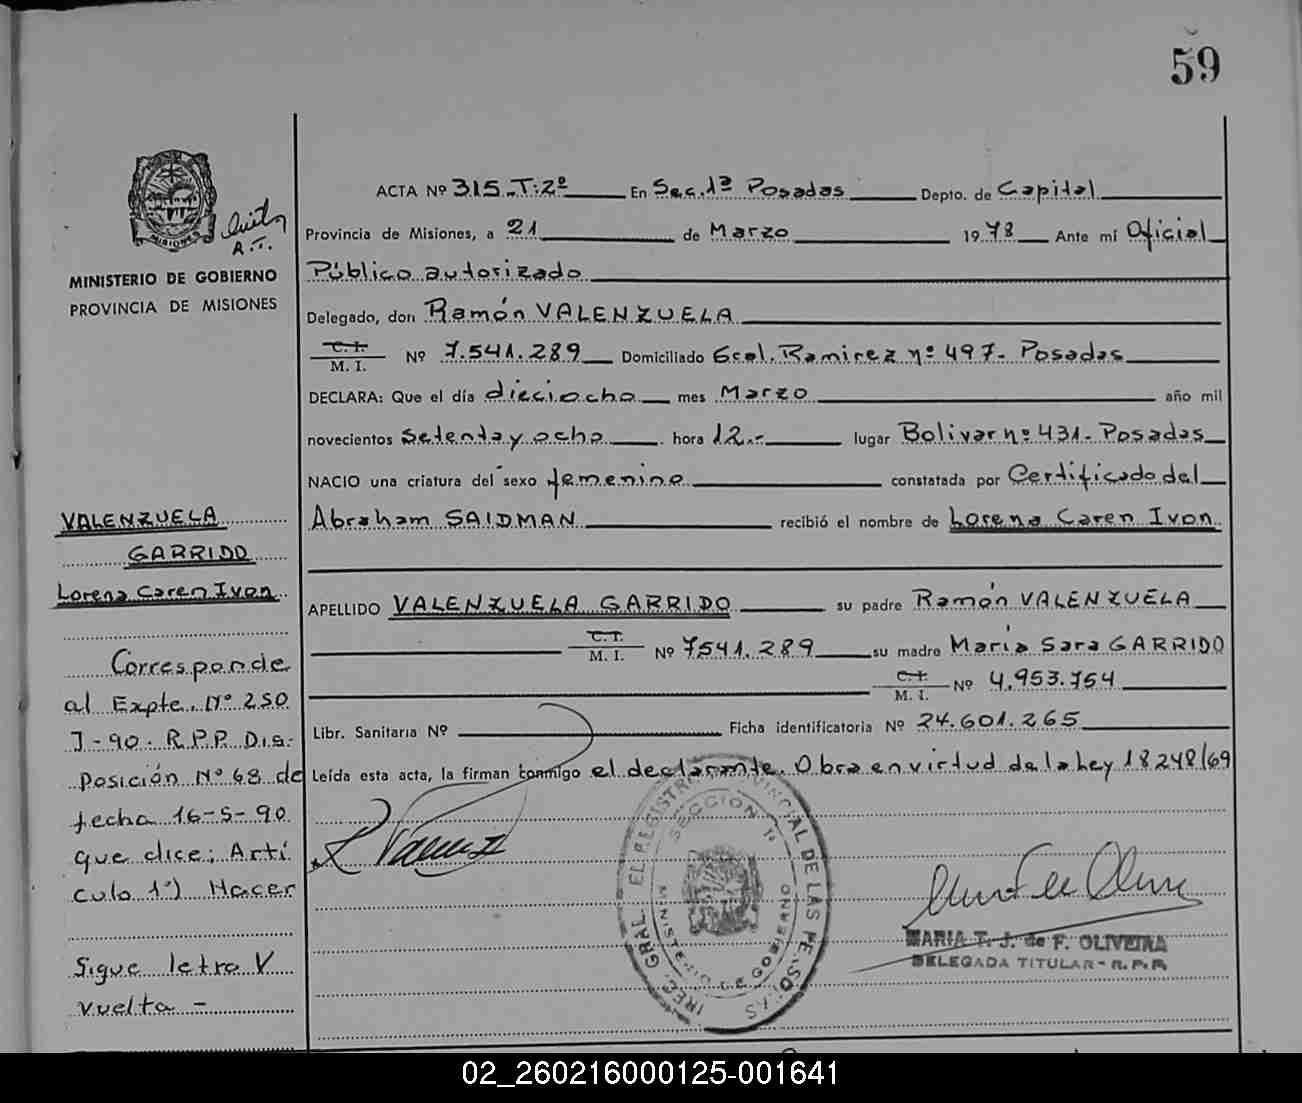 59
MISIONES
MINISTERIO DE GOBIERNO
PROVINCIA DE MISIONES
VALENZUELA
GARRIDO
Lorena Caren Ivon
Corresponde
al Expte. Nº 250
J-90. R.P.P. Dis-
posición Nº 68 de
fecha 16-5-90
que dice; Artí
culo 1º) Hacer
Sigue letra V
vuelta -
ACTA Nº 315.-T:2º En Sec. 1ª Posadas Depto. de Capital
Provincia de Misiones, a 21 de Marzo 1978 Ante mí Oficial
Público autorizado
Delegado, don Ramón VALENZUELA
C. I.
M. I. Nº 7.541.289 Domiciliado Gral. Ramirez nº 497- Posadas
DECLARA: Que el día dieciocho mes Marzo año mil
novecientos setenta y ocho hora 12.- lugar Bolivar nº 431- Posadas
NACIO una criatura del sexo femenino constatada por Certificado del
Abraham SAIDMAN recibió el nombre de Lorena Caren Ivon
APELLIDO VALENZUELA GARRIDO su padre Ramón VALENZUELA
C. I.
M. I. Nº 7541.289 su madre María Sara GARRIDO
C. I.
M. I. Nº 4.953.754
Libr. Sanitaria Nº Ficha identificatoria Nº 24.601.265
Leída esta acta, la firman conmigo el declarante. Obra en virtud de la Ley 18248/69
SECCION 1ª
MINISTERIO DE GOBIERNO
MARIA T. J. de F. OLIVEIRA
DELEGADA TITULAR - R.P.P.
02_260216000125-001641